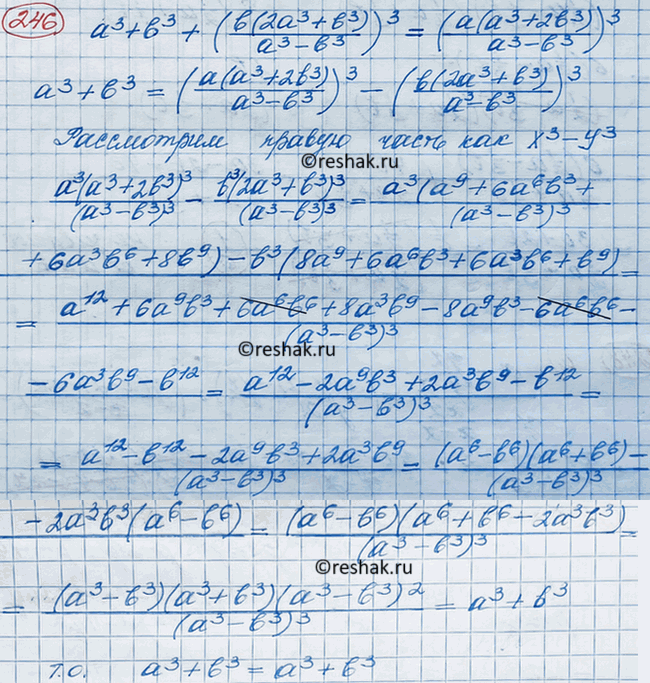 246
a³+b³+(b(2a³+b³)/(a³-b³))³=(a(a³+2b³)/(a³-b³))³
a³+b³=(a(a³+2b³)/(a³-b³))³-(b(2a³+b³)/(a³-b³))³
Рассмотрим правую часть как x³-y³
©reshak.ru
a³(a³+2b³)³/(a³-b³)³-b³(2a³+b³)³/(a³-b³)³=a³(a⁹+6a⁶b³+/(a³-b³)³
+6a³b⁶+8b⁹)-b³(8a⁹+6a⁶b³+6a³b⁶+b⁹)=
=a¹²+6a⁹b³+6a⁶b⁶+8a³b⁹-8a⁹b³-6a⁶b⁶-/(a³-b³)³
©reshak.ru
-6a³b⁹-b¹²=a¹²-2a⁹b³+2a³b⁹-b¹²/(a³-b³)³=
=a¹²-b¹²-2a⁹b³+2a³b⁹/(a³-b³)³=(a⁶-b⁶)(a⁶+b⁶)-/(a³-b³)³
-2a³b³(a⁶-b⁶)=(a⁶-b⁶)(a⁶+b⁶-2a³b³)/(a³-b³)³=
©reshak.ru
=(a³-b³)(a³+b³)(a³-b³)²/(a³-b³)³=a³+b³
т.о. a³+b³=a³+b³